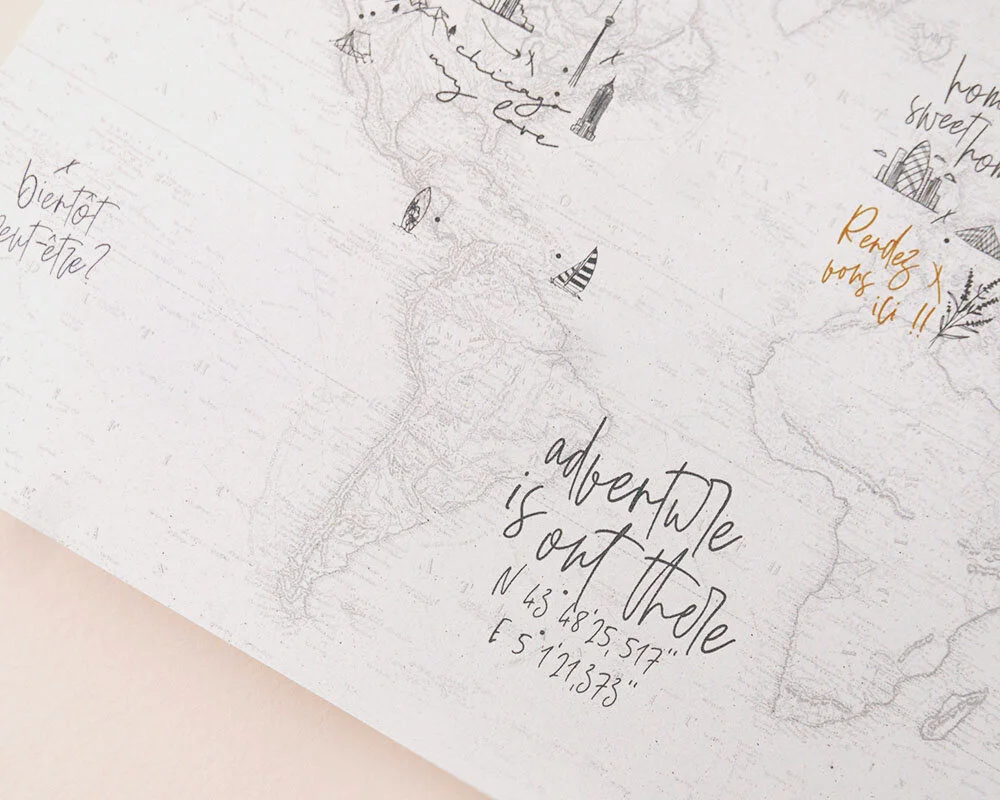 chicago
my love
sweet
bientôt
peut-être?
Rendez
vous
ici !!
adventure
is out there
N 43°48'25,517"
E 5°1'21,373"